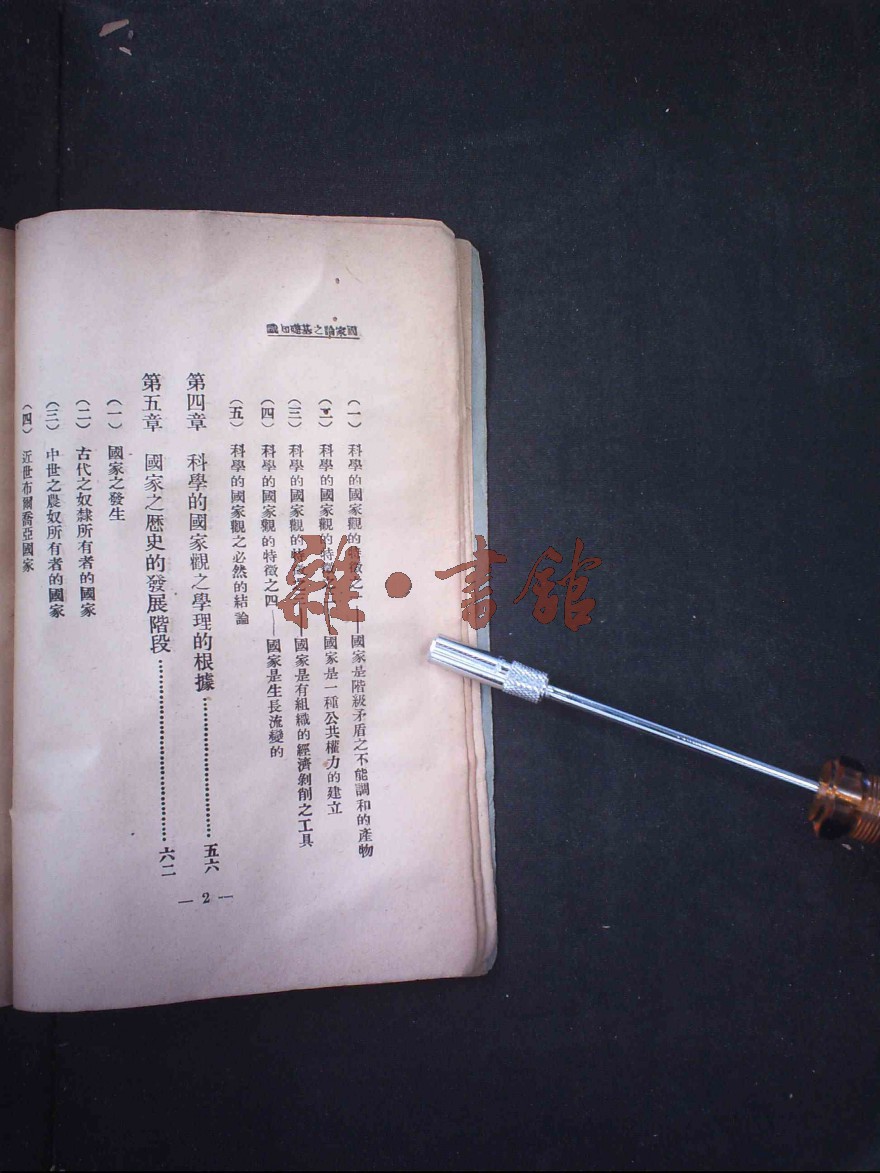 國家論之基礎知識
(一) 科學的國家觀的特徵之一——國家是階級矛盾之不能調和的產物
(二) 科學的國家觀的特徵之二——國家是一種公共權力的建立
(三) 科學的國家觀的特徵之三——國家是有組織的經濟剝削之工具
(四) 科學的國家觀的特徵之四——國家是生長流變的
(五) 科學的國家觀之必然的結論
第四章 科學的國家觀之學理的根據……………………五六
第五章 國家之歷史的發展階段……………………六二
(一) 國家之發生
(二) 古代之奴隸所有者的國家
(三) 中世之農奴所有者的國家
(四) 近世布爾喬亞國家
— 2 —
雜·書館